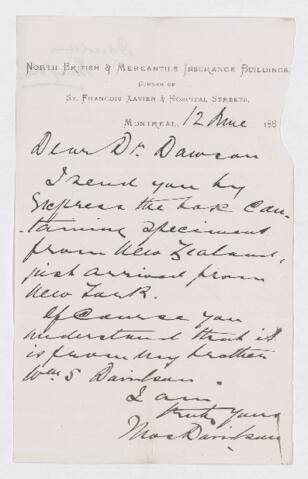 North British & Mercantile Insurance Buildings,
Corner of
St. François Xavier & Hospital Streets,
Montreal, 12 June 188
Dear Dr. Dawson
I send you by
Express the box Con-
taining specimens
from New Zealand,
just arrived from
New York.
Of Course you
understand that it
is from my brother
Wm S Davidson
I am
truly Yours
Thos Davidson